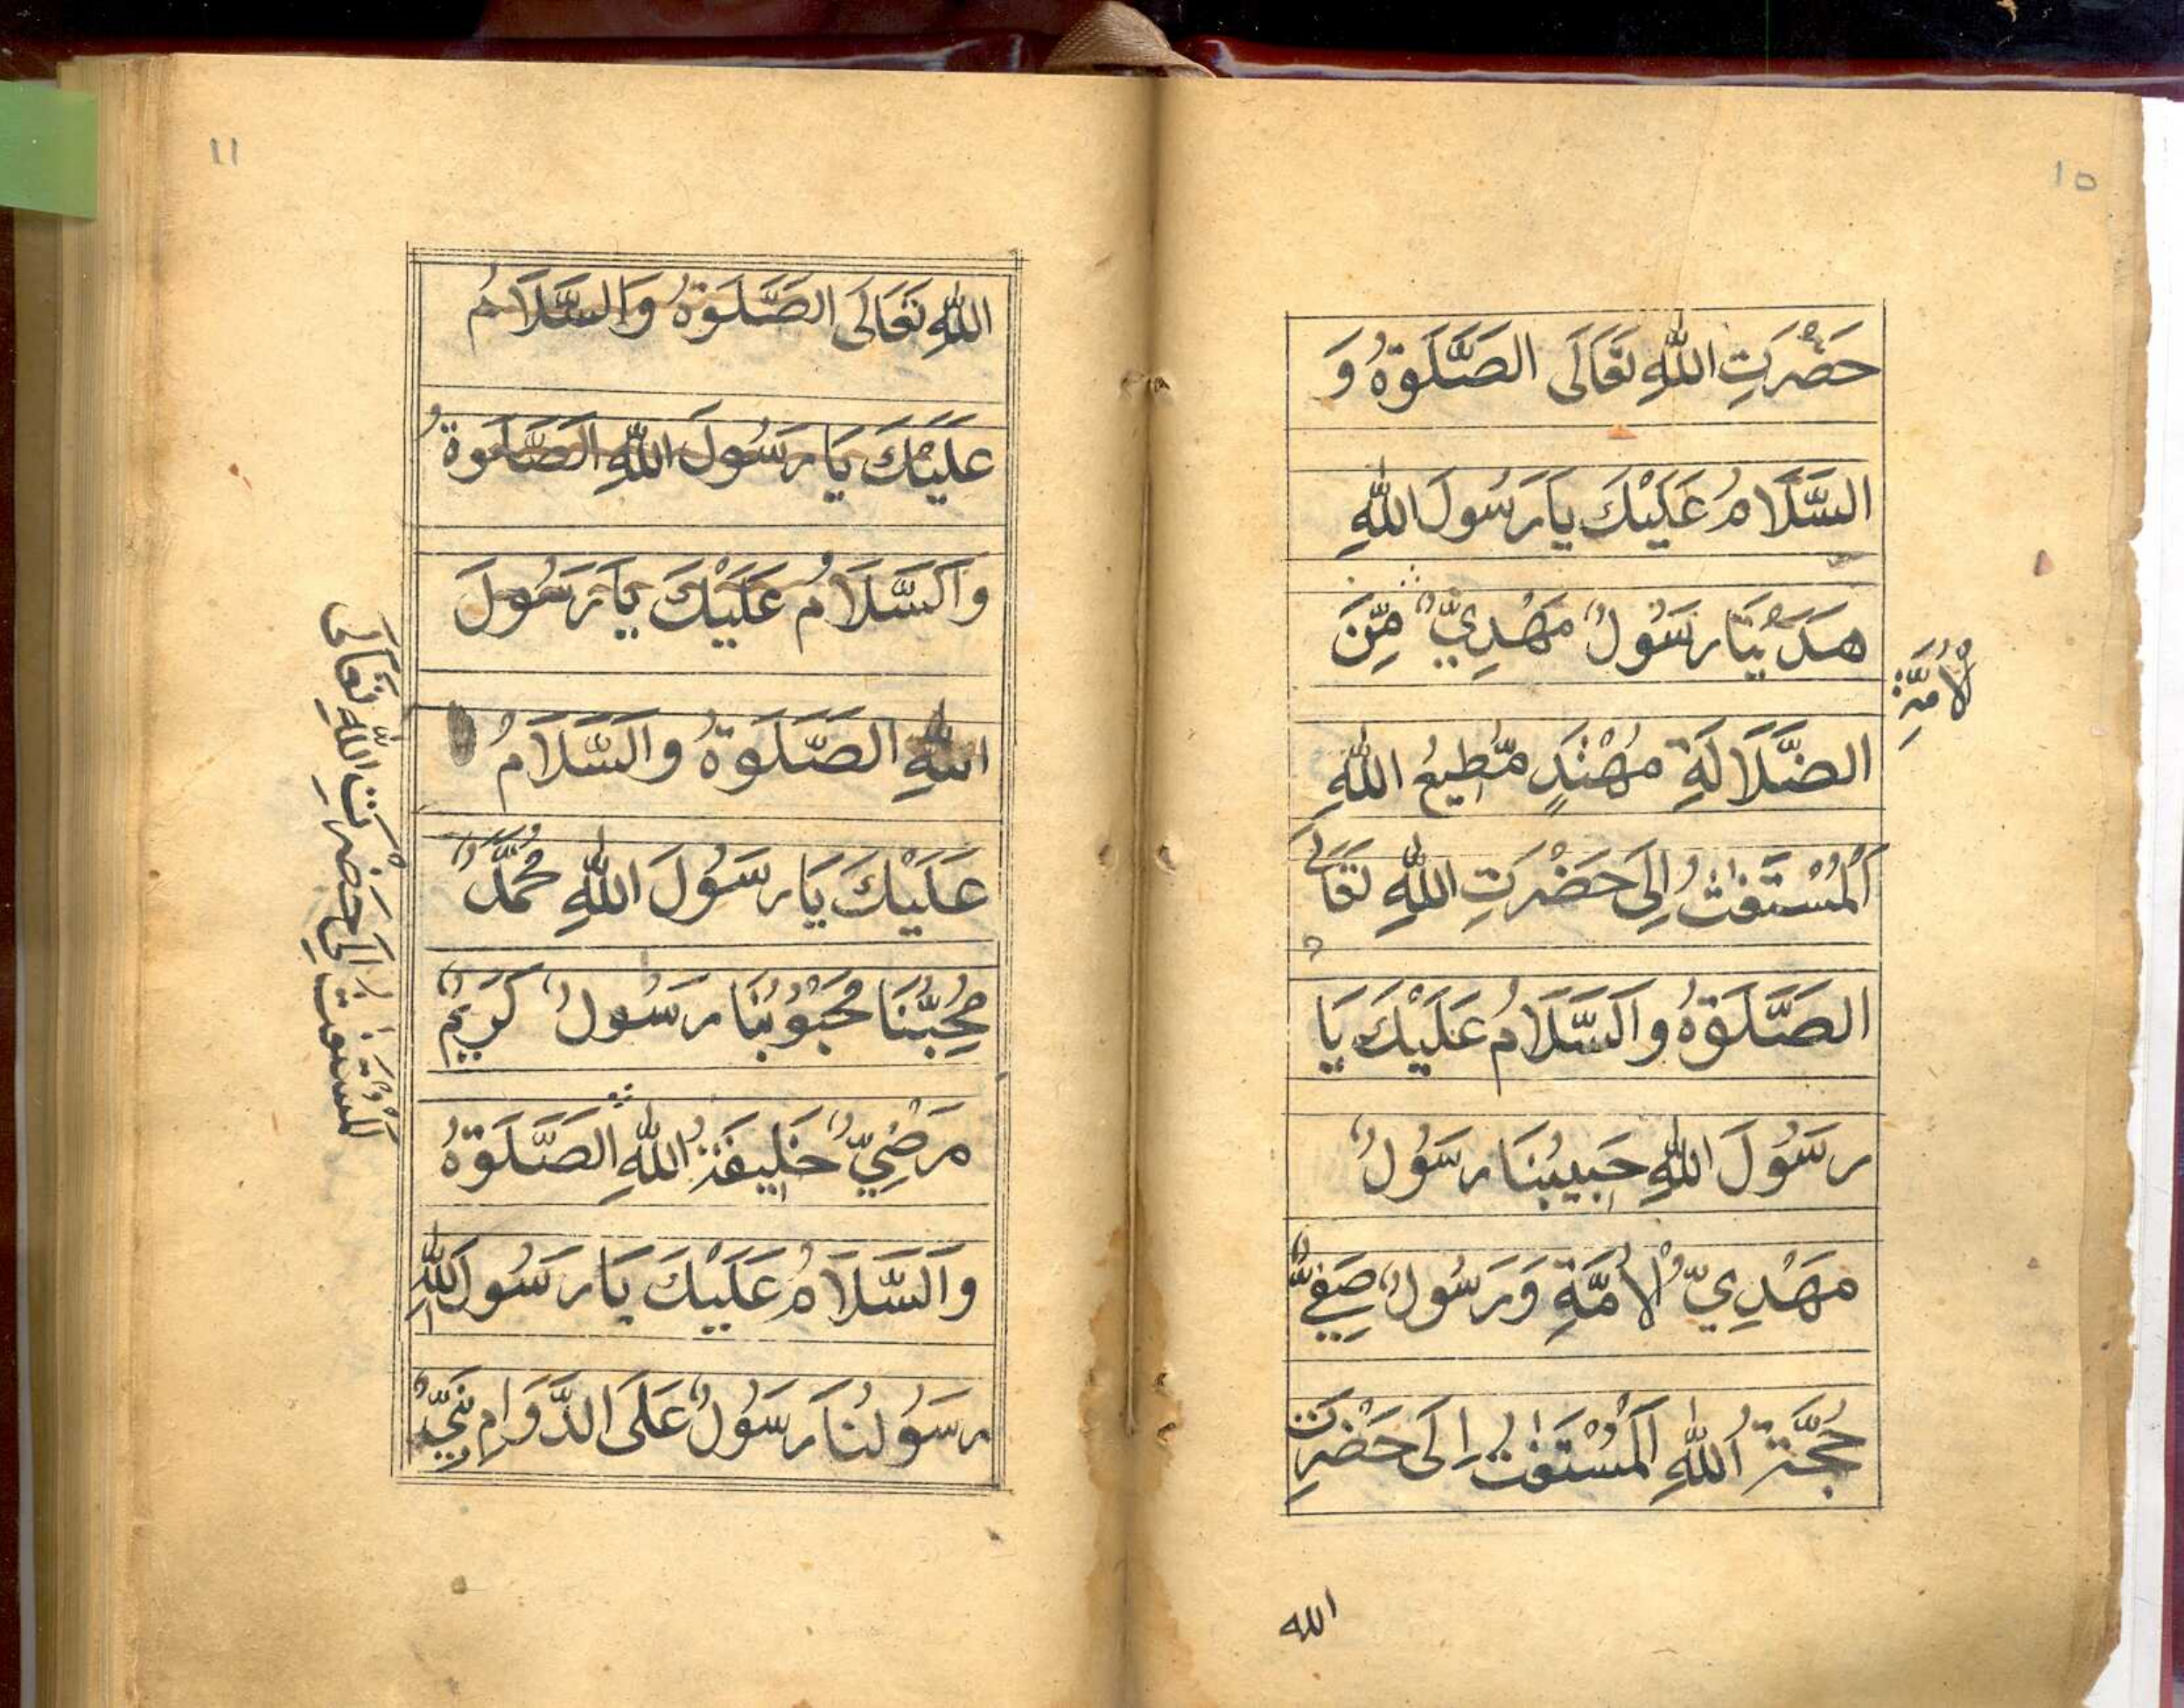 10
حَضْرَتِ اللّٰهِ تَعَالَى الصَّلَوٰةُ وَ
السَّلَامُ عَلَيْكَ يَا رَسُولَ اللّٰهِ
هَدَيْنَا رَسُوْلٌ مَهْدِيٌّ مِّنَ
الْاُمَّةِ
الضَّلَالَةِ مُهْتَدٍ مُّطِيعُ اللّٰهِ
اَلْمُسْتَغَاثُ اِلَى حَضْرَتِ اللّٰهِ تَعَالَى
الصَّلَوٰةُ وَالسَّلَامُ عَلَيْكَ يَا
رَسُوْلَ اللّٰهِ حَبِيبُنَا رَسُوْلٌ
مَهْدِيُّ الْاُمَّةِ وَرَسُوْلٌ صَفِيٌّ
حُجَّةُ اللّٰهِ اَلْمُسْتَغَاثُ اِلَى حَضْرَتِ
الله
11
اللّٰهِ تَعَالَى الصَّلَوٰةُ وَالسَّلَامُ
عَلَيْكَ يَا رَسُولَ اللّٰهِ الصَّلَوةُ
وَالسَّلَامُ عَلَيْكَ يَا رَسُولَ
اللّٰهِ الصَّلَوٰةُ وَالسَّلَامُ
عَلَيْكَ يَا رَسُولَ اللّٰهِ مُحَمَّدٌ
مُحِبُّنَا مَحْبُوْبُنَا رَسُولٌ كَرِيْمٌ
مَرْضِيٌّ خَلِيفَةُ اللّٰهِ الصَّلَوٰةُ
وَالسَّلَامُ عَلَيْكَ يَا رَسُولَ اللّٰهِ
رَسُوْلُنَا رَسُوْلٌ عَلَى الدَّوَامِ نَبِيٌّ
اَلْمُسْتَغَاثُ اِلَى حَضْرَتِ اللّٰهِ تَعَالَى